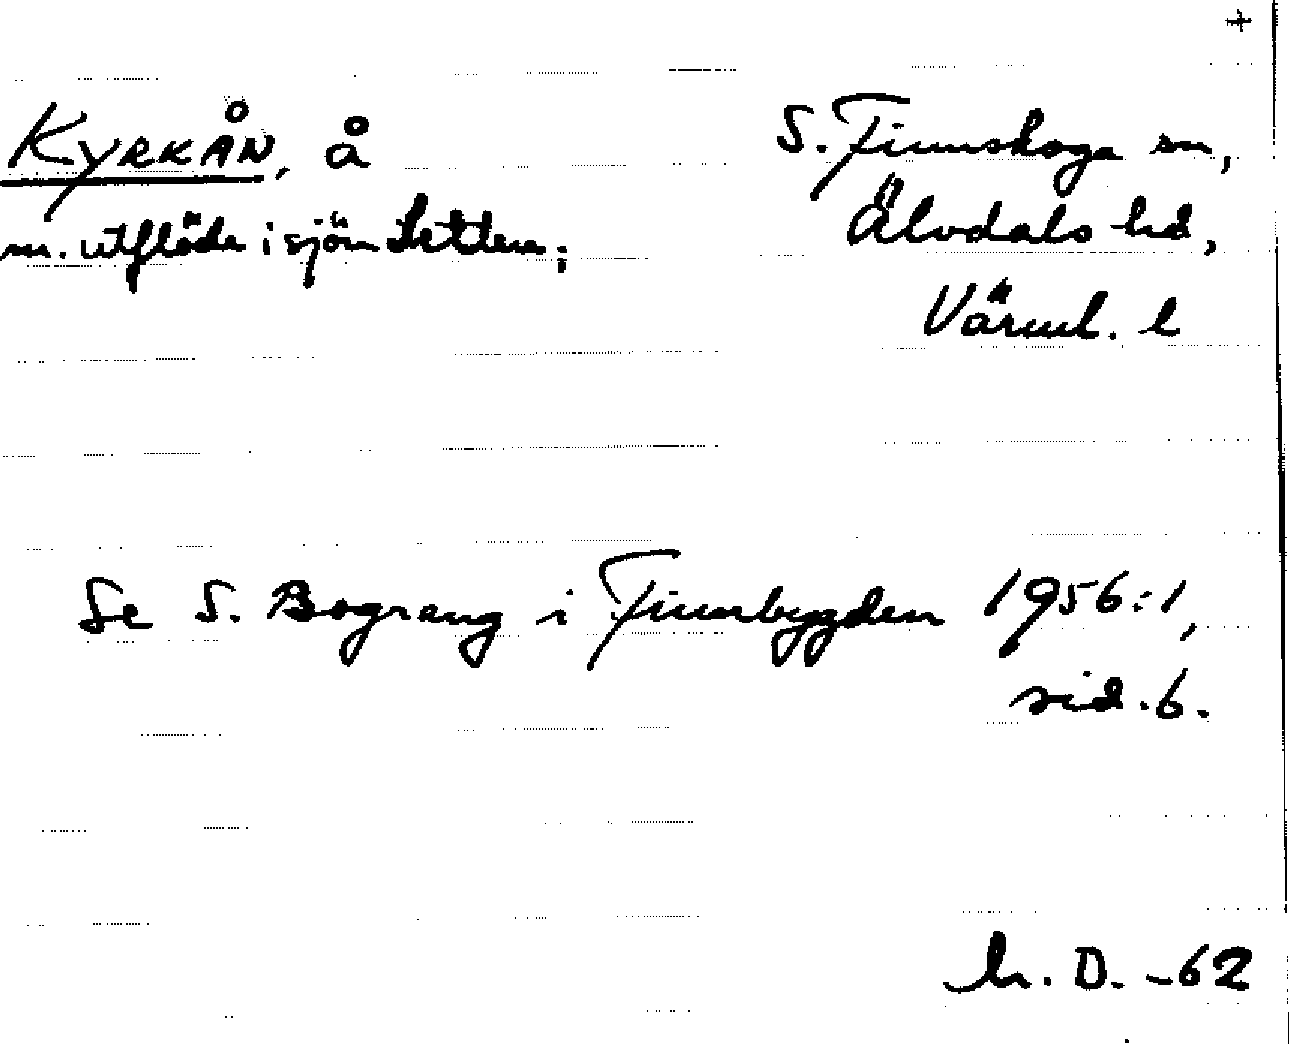 +
KYRKÅN, å
m. utflöde i sjön Letten;
S. Finnskoga sn,
Älvdals hd,
Värml. l
Se S. Bograng i Finnbygden 1956:1,
sid. 6.
D. -62